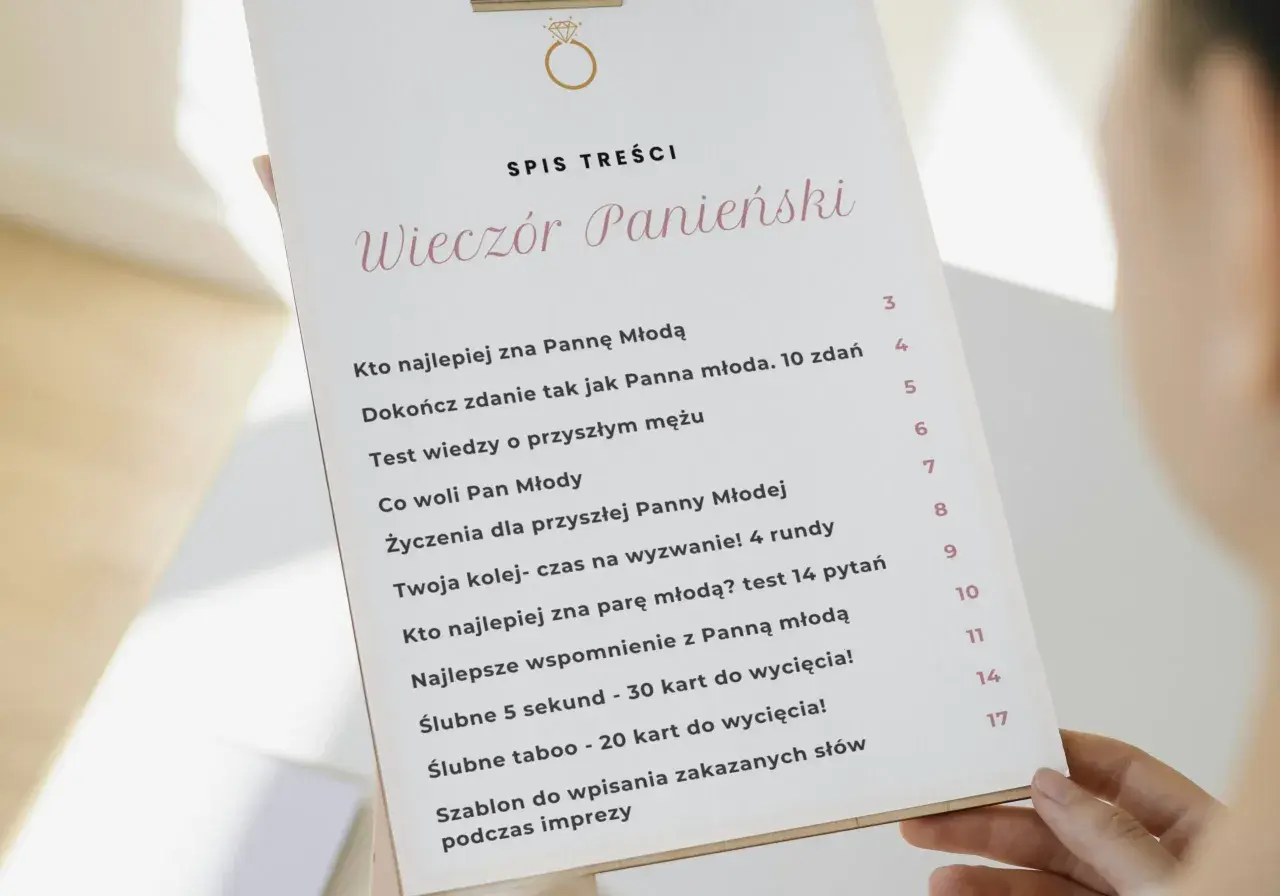 SPIS TREŚCI
Wieczór Panieński
Kto najlepiej zna Pannę Młodą 3
Dokończ zdanie tak jak Panna młoda. 10 zdań 4
Test wiedzy o przyszłym mężu 5
Co woli Pan Młody 6
Życzenia dla przyszłej Panny Młodej 7
Twoja kolej- czas na wyzwanie! 4 rundy 8
Kto najlepiej zna parę młodą? test 14 pytań 9
Najlepsze wspomnienie z Panną młodą 10
Ślubne 5 sekund - 30 kart do wycięcia! 11
Ślubne taboo - 20 kart do wycięcia! 14
Szablon do wpisania zakazanych słów 17
podczas imprezy